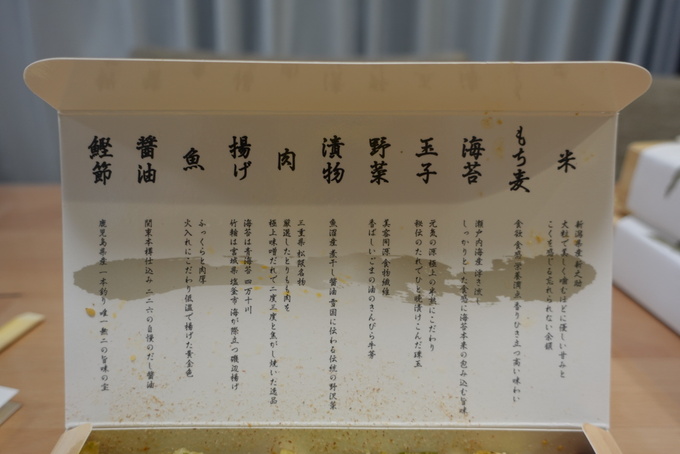 米
新潟県産新之助
大粒で美しく噛むほどに優しい甘みと
こくを感じる忘れられない余韻
もち麦
食物食感栄養満点 香りひき立つ高い味わい
海苔
瀬戸内海産
しっかりとした食感に海苔本来の包み込む旨味
玉子
元気の源 極上の本飴にこだわり
秘伝のたれでひと晩漬けこんだ煙玉
野菜
美容同源 食物繊維
香ばしいごまの油のきんぴら牛蒡
漬物
魚沼産煮干し醤油 雪国に伝わる伝統の野沢菜
肉
三重県 松阪名物
厳選したとりもも肉を
極上味噌だれで二度三度と焦がし焼いた逸品
揚げ
海苔は青海苔 四万十川
竹輪は宮城県塩釜市 海が際立つ磯辺揚げ
魚
ふっくらと肉厚
火入れにこだわり低温で揚げた黄金色
醤油
関東木樽仕込み 二二六の自慢のだし醤油
鰹節
鹿児島県産 一本釣り 唯一無二の旨味の宝